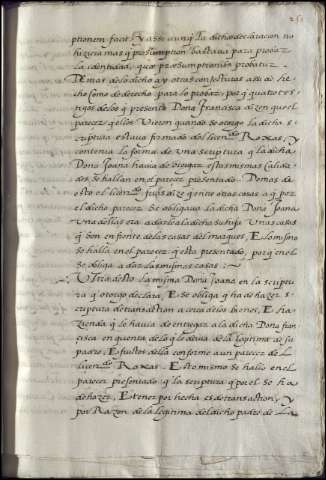 251
ptionem facit y assi aunq̃ la dicha declaracion no
hiziera mas q̃ presumption bastaua para probar
la identidad, quæ præsumptionibus probatur.
Demas de lo dicho ay otras conjecturas assi de he
cho como de derecho para lo probar, porq̃ quatro tes
tigos de los q̃ presentó Doña Francisca dizen que el
parecer q̃ ellos Vieron quando se otorgo la dicha es
criptura estaua firmado del licendo Roxas, y
contenia la forma de una scriptura q̃ la dicha
Doña Joana hauia de otorgar estas mismas calida
des se hallan en el parecer presentado. Demas de
esto el licendo dize q̃ entre otras cosas a q̃ por
el dicho parecer se obligaua la dicha Doña Joana
una dellas era a dar a la dicha su hija Unas casas
q̃ son en frente de las casas del marques, E lo mismo
se halla en el parecer q̃ esta presentado, porq̃ en el
se obliga a dar las mismas casas.
Ultra desto la misma Doña Joana en la scriptu
ra q̃ otorgo declara, E se obliga q̃ ha de hazer s
criptura de transaction a cerca de los bienes, E ha
zienda q̃ le hauia de entregar a la dicha Doña fran
cisca en quenta de lo q̃ le deuia de la legitima de su
padre, E fructos della conforme a un parecer del
licendo Roxas. E esto mismo se hallo en el
parecer presentado q̃ la scriptura q̃ por el se ha
de hazer, E tener por hecha es de transaction, y
por Razon de la legitima del dicho padre de la